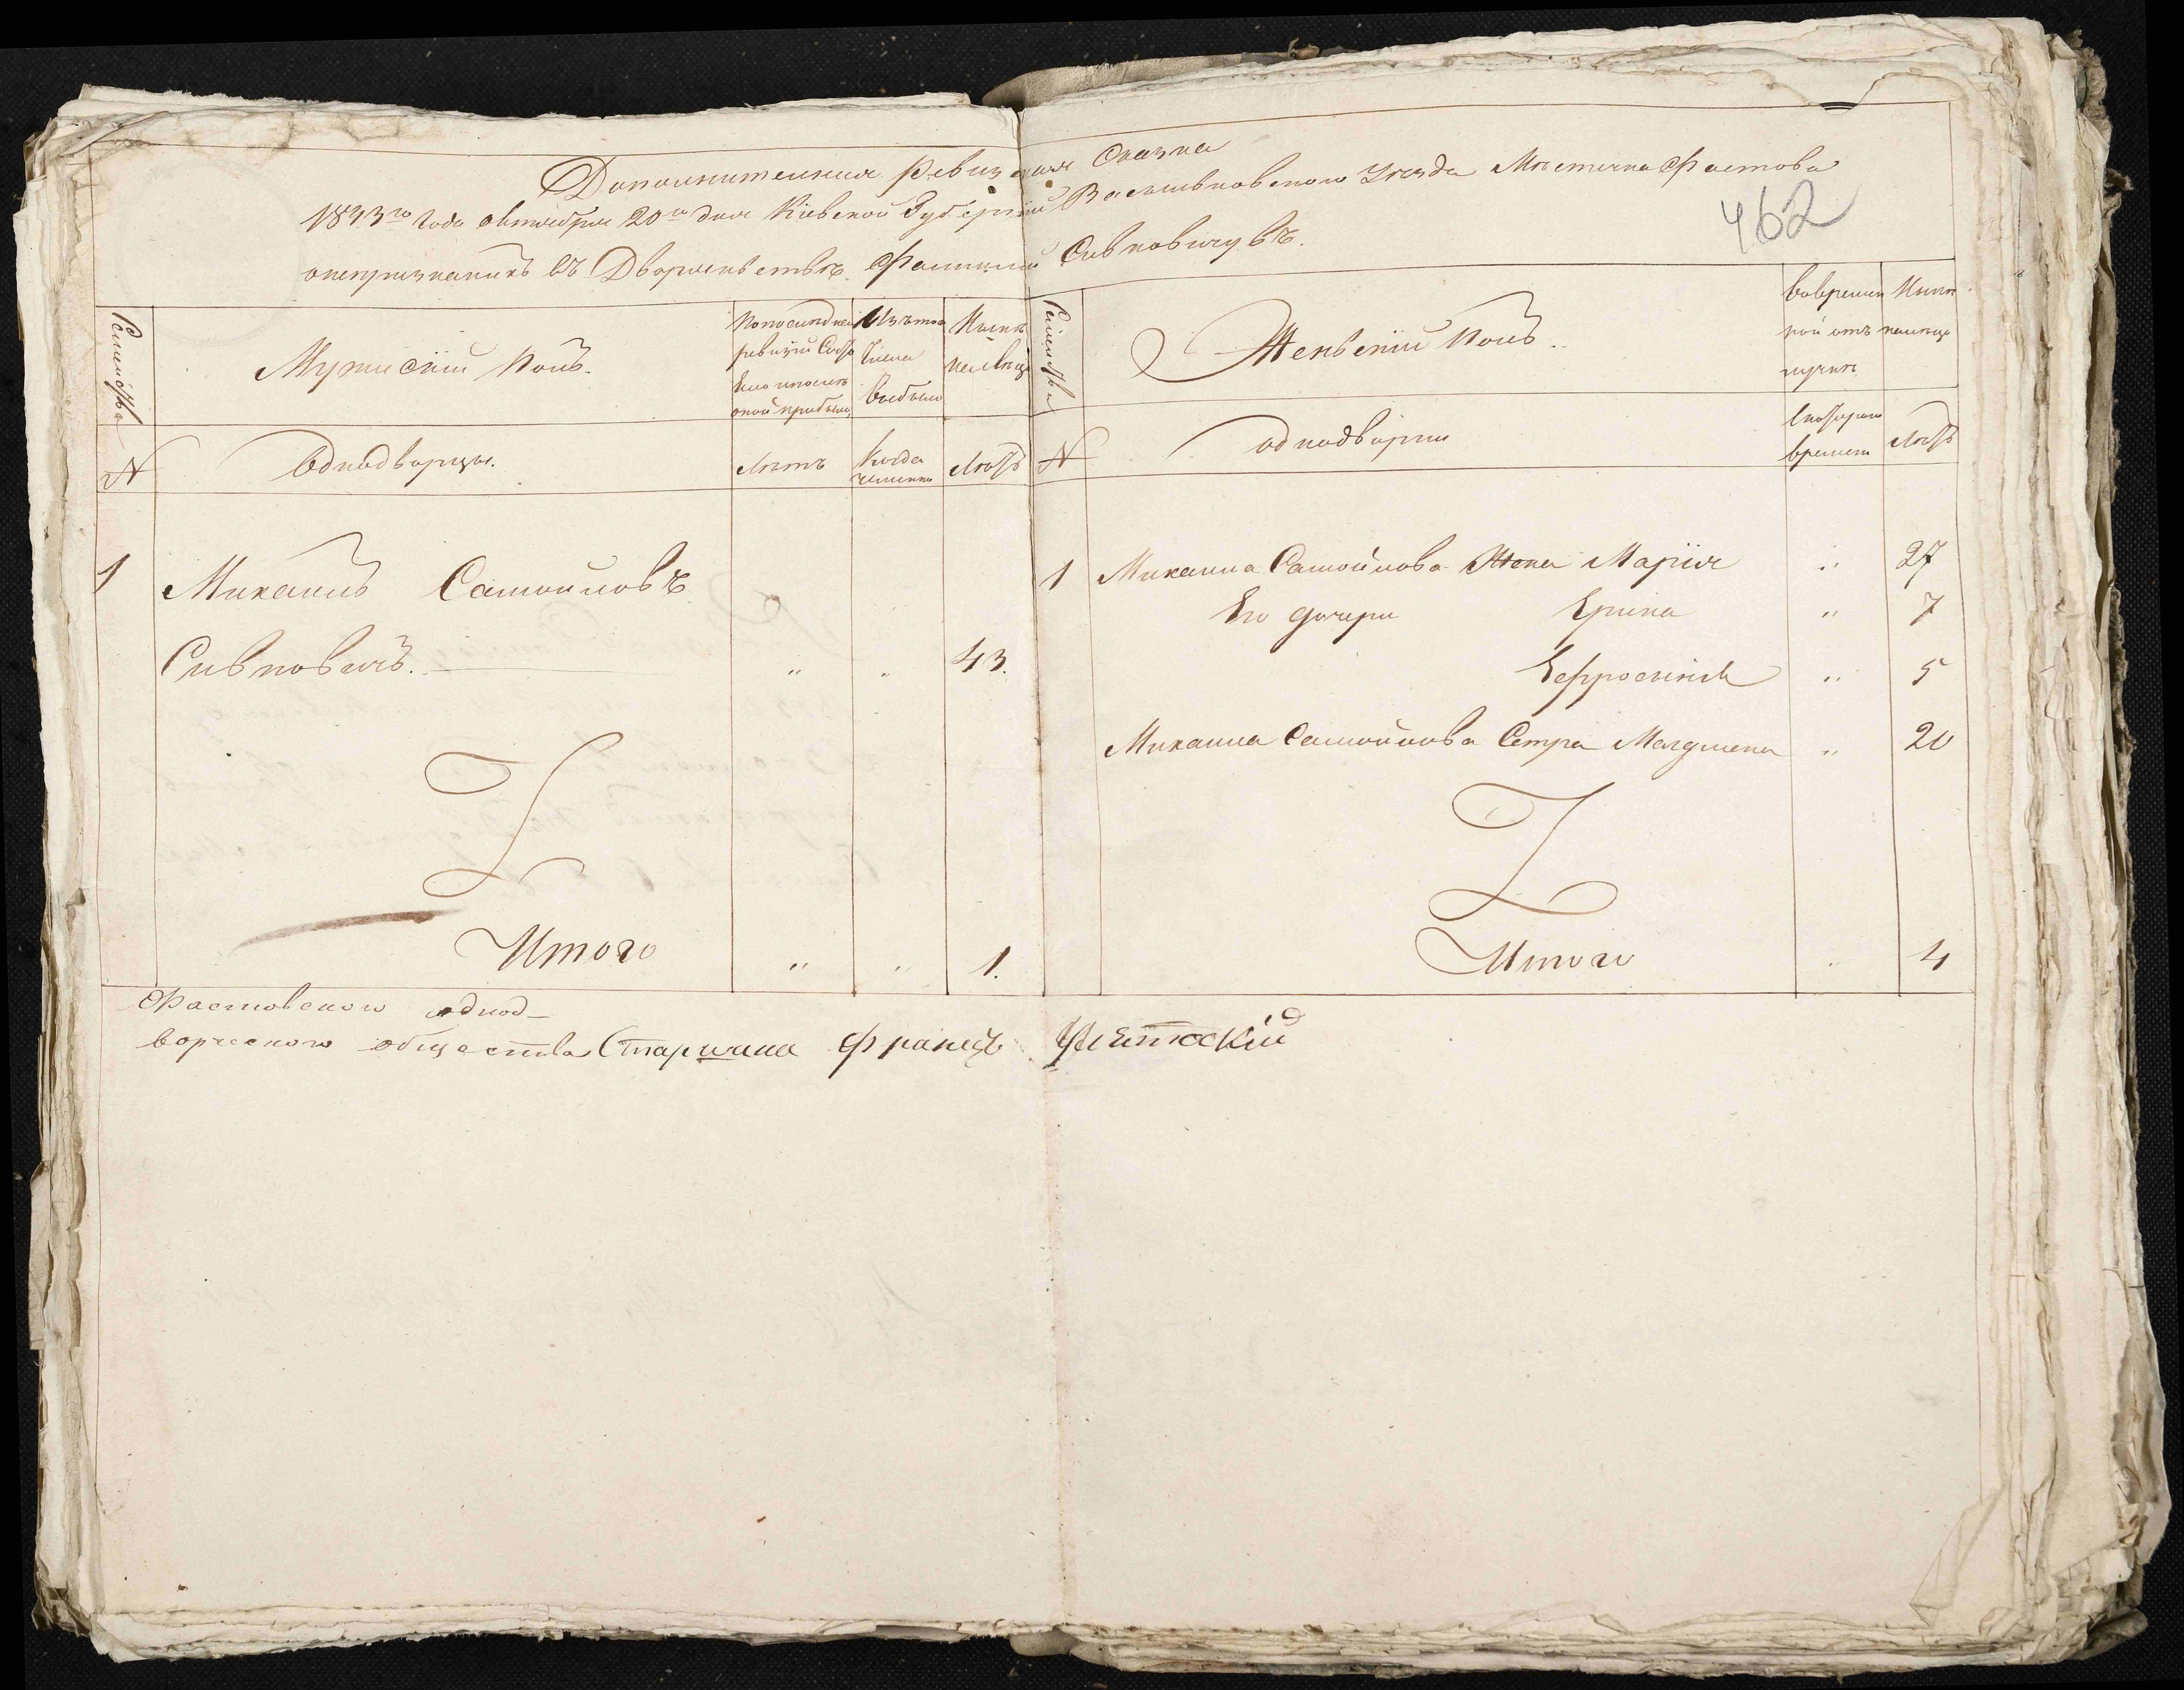 Дополнительная Ревизская Сказка
1843го Года Октября 20го дня Кіевской Губерніи Васильковского Уезда Местечка Фастова
онепризнаныхъ въ Дворянстве Фамиліи Сивковичувъ.
462
Семейства
Мужискій Полъ.
Попоследней ревизіи Состояло ипосле оной прибыло
Изътого Числа Выбыло
Ныне налицо
Семейства
Женьскій Полъ.
Вовременной отълучке
Ныне налицо
N
Однодворцы.
Летъ
Когда имянно
Летъ
N
однодворки
Скоторого времени
Летъ
1 Михаилъ Самойловъ
Сивковичъ. „ „ 43.
Итого „ „ 1.
1 Михаила Самойлова Жена Марія „ 27
Его дочери Ерина „ 7
Ефросинія „ 5
Михаила Самойлова Сетра Магдилена „ 20
Итого „ 4
Фастовского однод-
ворческого общества Старшина Францъ